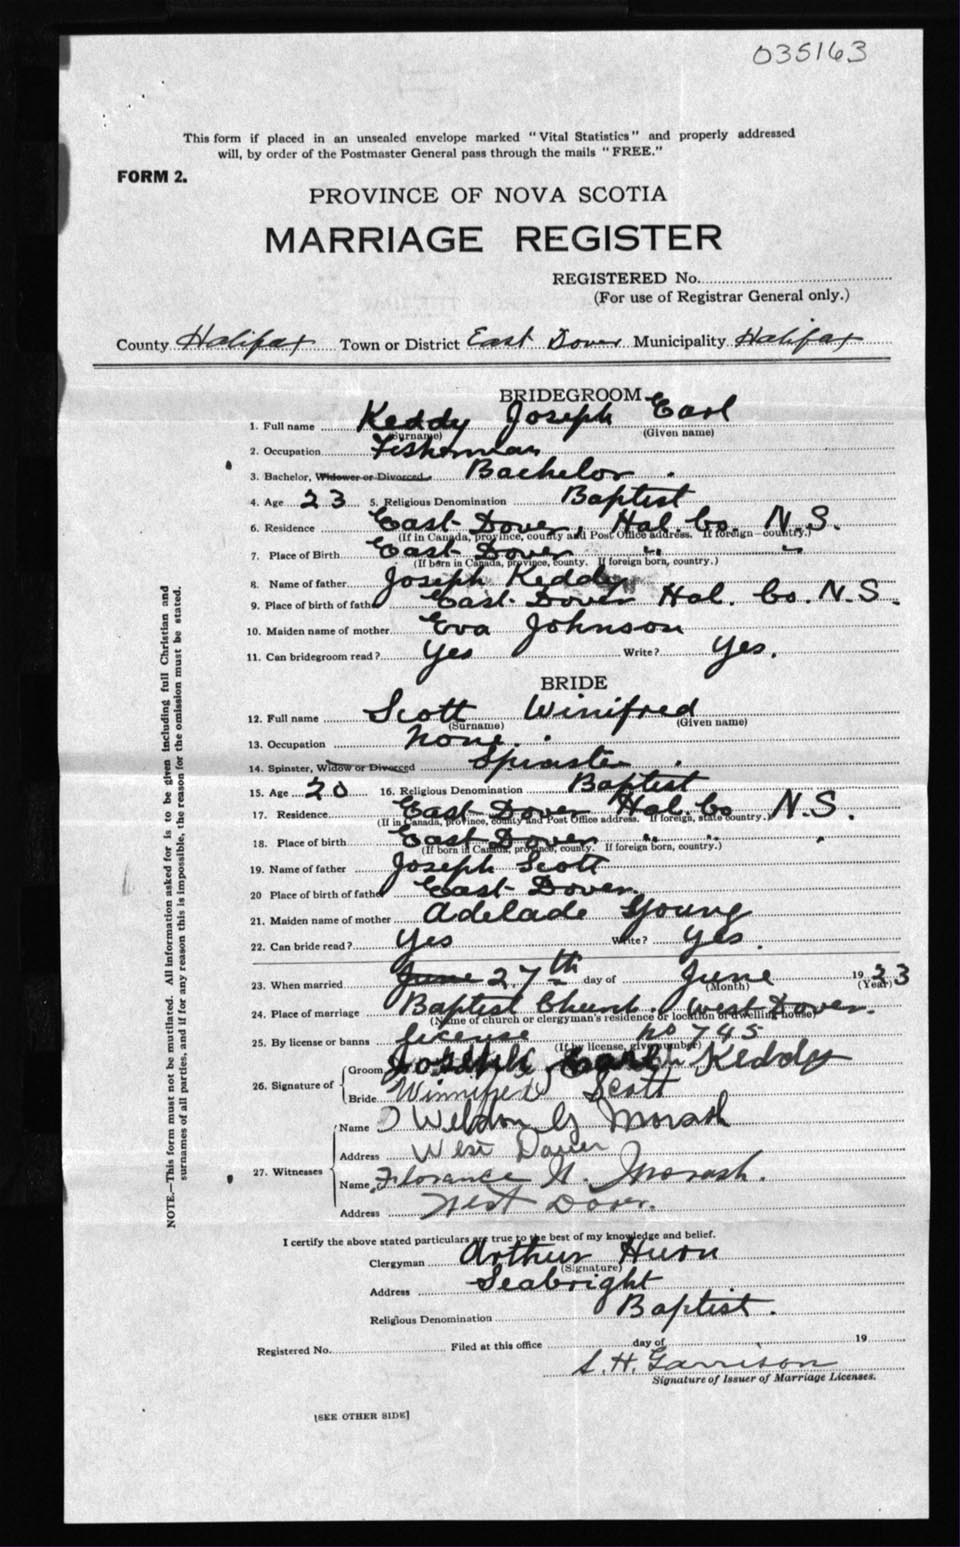 035163
This form if placed in an unsealed envelope marked "Vital Statistics" and properly addressed
will, by order of the Postmaster General pass through the mails "FREE."
FORM 2.
PROVINCE OF NOVA SCOTIA
MARRIAGE REGISTER
REGISTERED No.
(For use of Registrar General only.)
County Halifax Town or District East Dover Municipality Halifax
BRIDEGROOM
1. Full name Keddy Joseph Earl
(Surname) (Given name)
2. Occupation Fisherman
3. Bachelor, Widower or Divorced Bachelor.
4. Age 23 5. Religious Denomination Baptist
6. Residence East Dover, Hal. Co. N.S.
(If in Canada, province, county and Post Office address. If foreign country.)
7. Place of Birth East Dover " "
(If born in Canada, province, county. If foreign born, country.)
8. Name of father Joseph Keddy
9. Place of birth of father East Dover Hal. Co. N.S.
10. Maiden name of mother Eva Johnson
11. Can bridegroom read? Yes Write? Yes.
BRIDE
12. Full name Scott Winifred
(Surname) (Given name)
13. Occupation None.
14. Spinster, Widow or Divorced Spinster.
15. Age 20 16. Religious Denomination Baptist
17. Residence East Dover Hal Co N.S.
(If in Canada, province, county and Post Office address. If foreign, state country.)
18. Place of birth East Dover " " "
(If born in Canada, province, county. If foreign born, country.)
19. Name of father Joseph Scott
20 Place of birth of father East Dover.
21. Maiden name of mother Adelade Young
22. Can bride read? Yes Write? Yes.
23. When married June 27th day of June 1923
(Month) (Year)
24. Place of marriage Baptist Church. West Dover.
(Name of church or clergyman's residence or location of dwelling house)
25. By license or banns license No 745
(If by license, give number)
26. Signature of Groom Joseph Earl Keddy
Bride Winnifed Scott
27. Witnesses Name Weldon G Morash
Address West Dover
Name Florance H. Morash.
Address West Dover.
I certify the above stated particulars are true to the best of my knowledge and belief.
Clergyman Arthur Huron
(Signature)
Address Seabright
Religious Denomination Baptist.
Registered No. Filed at this office day of 19
S. H. Garrison
Signature of Issuer of Marriage Licenses.
[SEE OTHER SIDE]
NOTE.—This form must not be mutilated. All information asked for is to be given including full Christian and
surnames of all parties, and if for any reason this is impossible, the reason for the omission must be stated.